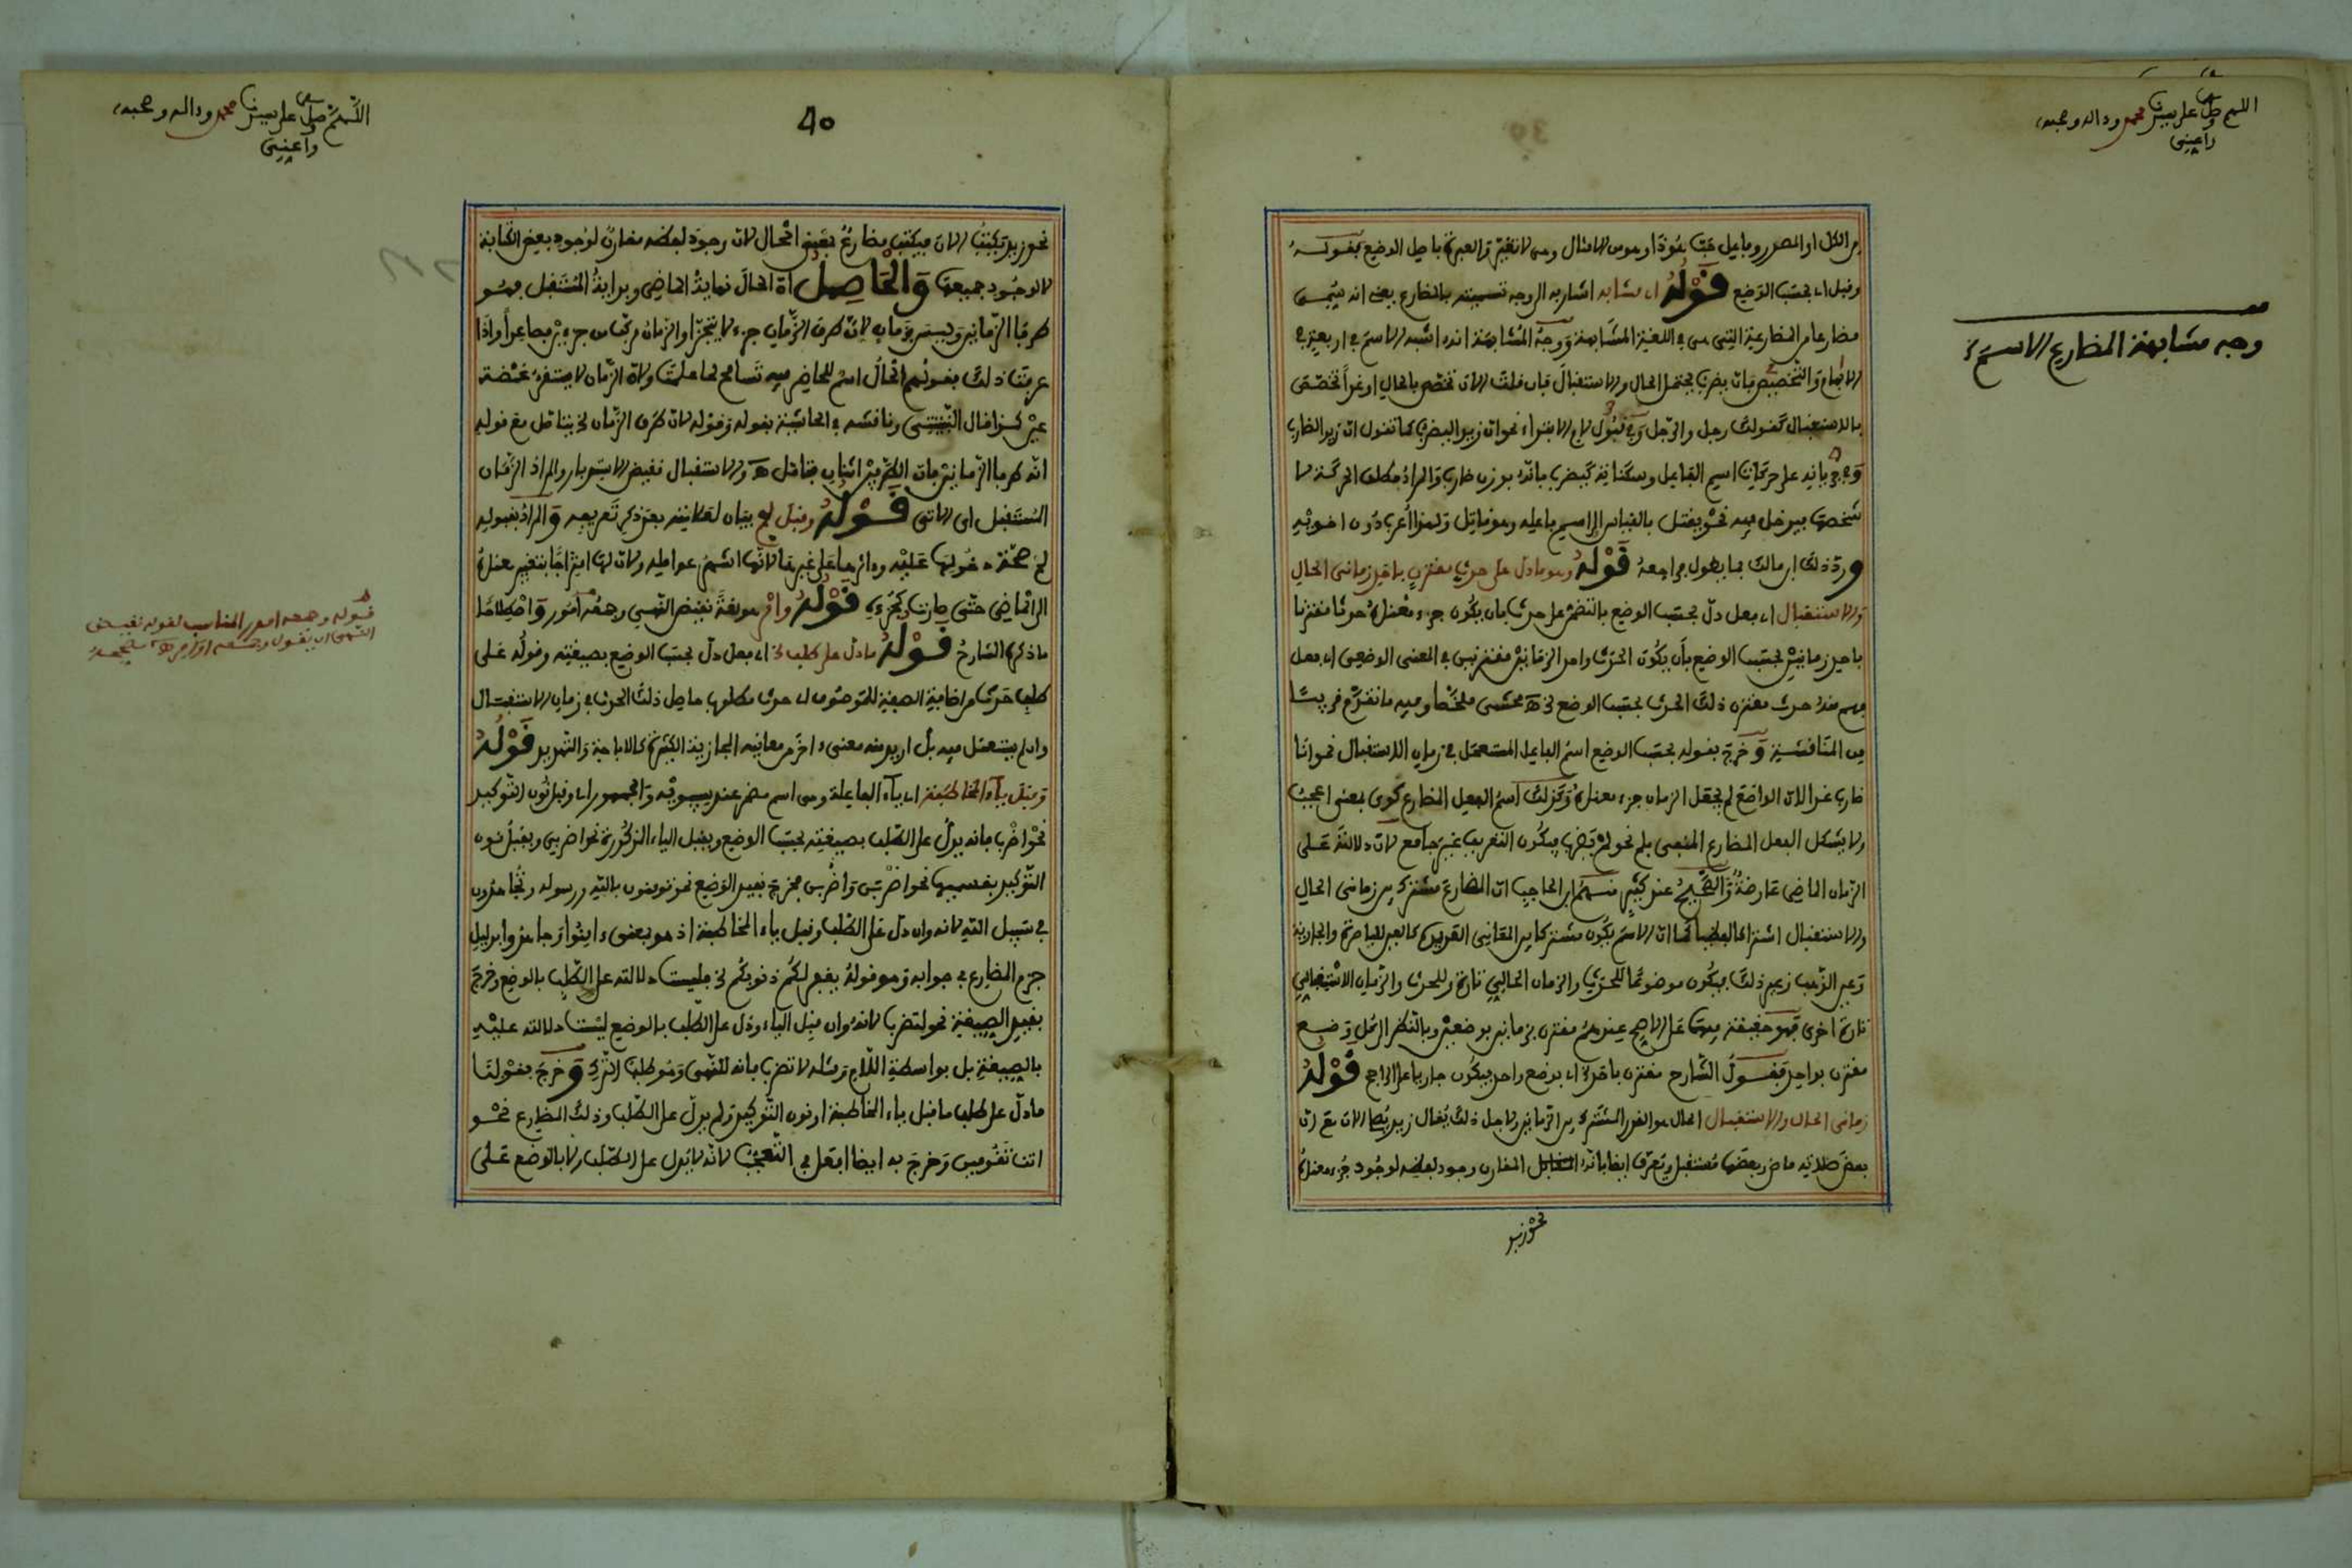 اللهم صل وسلم على سيدنا محمد وءاله وصحبه
واعني
وجه مشابهة المضارع الاسم
وقيل اي بحسب الوضع قوله اي مشابه اشار به الى وجه تسميته بالمضارع يعني انه سمي
مضارعا من المضارعة التي هي في اللغة المشابهة ووجه المشابهة انه اشبه الاسم في اربعة في
الابهام والتخصيص فان يضرب يحتمل الحال والاستقبال فان قلت الان تخصص بالحال او غدا تخصص
بالاستقبال كقولك رجل والرجل وفي قبول لام الابتداء نحو ان زيدا ليضرب كما تقول ان زيدا لضارب
وفي جريانه على حركات اسم الفاعل وسكناته كيضرب فانه بوزن ضارب والمراد مطلق الحركة لا
شخصها فيدخل فيه نحو يقتل بالقياس الى اسم فاعله وهو قاتل ولهذا أعرب دون اخويه
ورد ذلك ابن مالك بما يطول فراجعه قوله وهو ما دل على حدث مقترن باحد زماني الحال
والاستقبال اي فعل دل بحسب الوضع بالتضمن على حدث بان يكون جزء معناه حدثا مقترنا
باحد زمانين بحسب الوضع بأن يكون الحدث واحد الزمانين مقترنين في المعنى الوضعي اي فعل
فهم منه حدث مقترن ذلك الحدث بحسب الوضع الخ اهـ محشي ملخصا وفيه ما تقدم قريبا
من المناقشة وخرج بقوله بحسب الوضع اسم الفاعل المستعمل في زمان الاستقبال نحو انا
ضارب غدا لان الواضع لم يجعل الزمان جزء معناه وكذلك اسم الفعل المضارع كوى بمعنى اعجب
ولا يشكل الفعل المضارع المنفي بلم نحو لم يضرب فيكون التعريف غير جامع لان دلالته على
الزمان الماضي عارضة والصحيح عند كثير منهم ابن الحاجب ان المضارع مشترك بين زماني الحال
والاستقبال اشتراكا لفظيا كما ان الاسم يكون مشتركا بين المعاني العديدة كالعين للباصرة والجارية
وعين الذهب زعم ذلك فيكون موضوعا للحدث والزمان الحالي تارة وللحدث والزمان الاستقبالي
تارة اخرى فهو حقيقة فيهما على الاصح عندهم مقترن بزمانين بوضعين وبالنظر الى كل وضع
مقترن بواحد فقول الشارح مقترن باحد اي بوضع واحد فيكون جاريا على الراجح قوله
زماني الحال والاستقبال الحال هو القدر المشترك بين الزمانين ولاجل ذلك يقال زيد يصلي الان مع ان
بعض صلاته ماض وبعضها مستقبل ويعرف ايضا بانه المقارن وجود لفظه لوجود جزء معناه
نحو زيد
40
اللهم صل وسلم على سيدنا محمد وءاله وصحبه
واعني
نحو زيد يكتب الان فيكتب مضارع بمعنى الحال لان وجود لفظه مقارن لوجود بعض الكتابة
لا لوجود جميعها والحاصل ان الحال نهاية الماضي وبداية المستقبل فهو
طرفا الزمانين وليس بزمان لان طرف الزمان جزء لا يتجزا والزمان مركب من جزءين فصاعدا واذا
عرفت ذلك فقولهم الحال اسم للحاضر فيه تسامح لما علمت ولان الزمان لا يستقر لحظة
عين كذا قال النبتيتي وناقشه في الحاشية بقوله وقوله لان طرف الزمان الخ يناقض مع قوله
انه طرفا الزمانين فان الطرفين اثنان فتامل اهـ والاستقبال نقيض الاستدبار والمراد الزمان
المستقبل اي الاتي قوله وقبل لم بيان لعلامته بعد ذكر تعريفه والمراد بقبوله
لم صحة دخولها عليه وءاثرها على غيرها لانها اشهر عوامله ولان لها امتزاجا بتغيير معناه
الى الماضي حتى صارت كجزءه قوله وامر هو لغة نقيض النهي وجمعه امور واصطلاحا
ما ذكره الشارح قوله ما دل على طلب الخ اي فعل دل بحسب الوضع بصيغته وقوله على
طلب حدث من اضافة الصفة للموصوف اي حدث مطلوب حاصل ذلك الحدث في زمان الاستقبال
وان لم يستعمل فيه بل اريد منه معنى ءاخر من معانيه المجازية الكثيرة كالاباحة والتهديد قوله
وقبل ياء المخاطبة اي ياء الفاعلة وهي اسم مضمر عند سيبويه والجمهور اي وقبل نون التوكيد
نحو اضرب فانه يدل على الطلب بصيغته بحسب الوضع ويقبل الياء المذكورة نحو اضربي ويقبل نون
التوكيد بقسميها نحو اضربن واضربن فخرج بقيد الوضع نحو تومنون بالله ورسوله وتجاهدون
في سبيل الله لانه وان دل على الطلب وقبل ياء المخاطبة اذ هو بمعنى ءامنوا وجاهدوا بدليل
جزم المضارع في جوابه وهو قوله يغفر لكم ذنوبكم الخ فليست دلالته على الطلب بالوضع وخرج
بقيد الصيغة نحو لتضرب لانه وان قبل الياء ودل على الطلب بالوضع ليست دلالته عليه
بالصيغة بل بواسطة اللام ومثله لا تضرب فانه للنهي وهو طلب الترك وخرج بقولنا
ما دل على طلب ما قبل ياء المخاطبة او نون التوكيد ولم يدل على الطلب وذلك المضارع نحو
انت تقومين وخرج به ايضا افعل في التعجب لانه لا يدل على الطلب ولا بالوضع على
قوله وجمعه امور المناسب لقوله نقيض
النهي ان يقول وجمعه اوامر اهـ